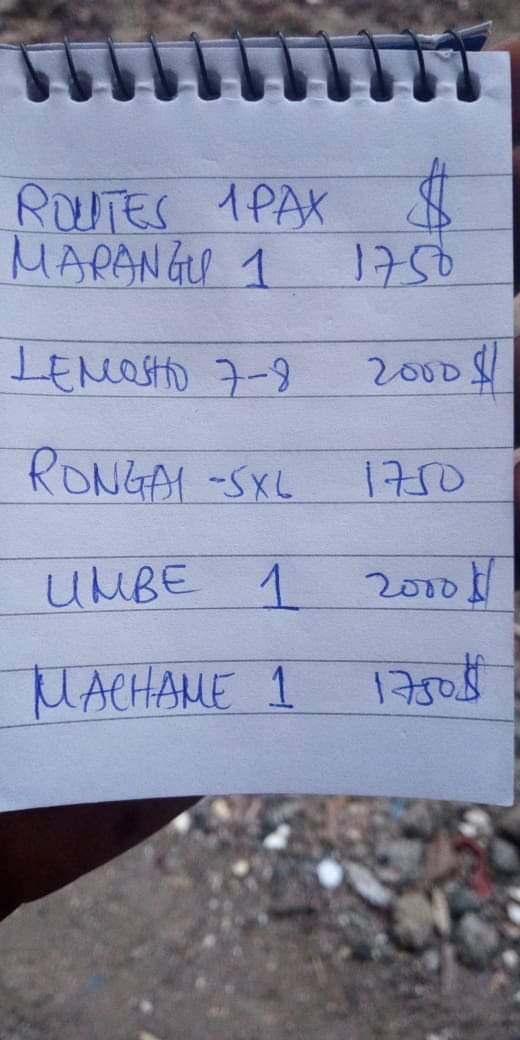 ROUTES 1PAX $
MARANGU 1 1750
LEMOSHO 7-8 2000$
RONGAI -5X6 1750
UMBE 1 2000$
MACHAME 1 1750$